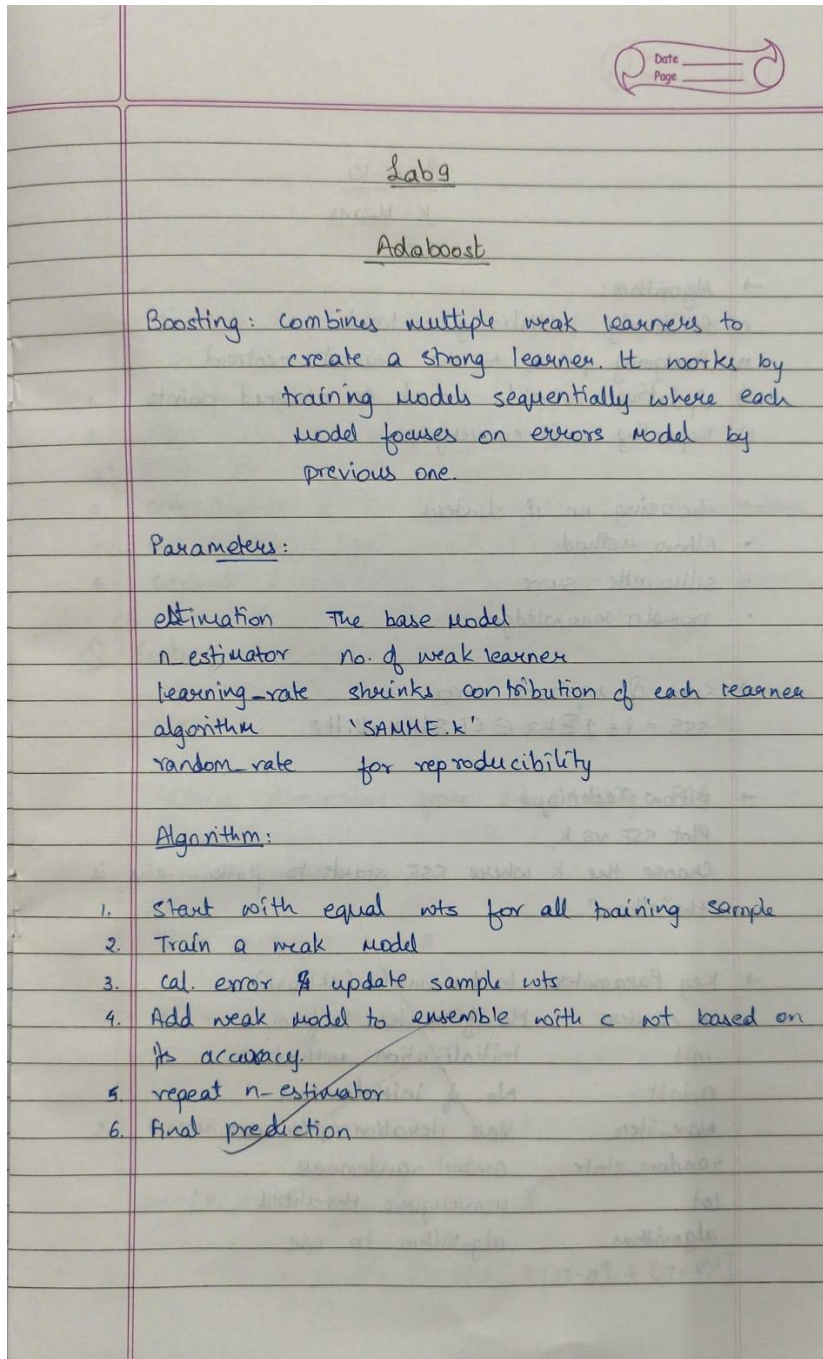 Date
Page
Lab 9
Adaboost
Boosting: combines multiple weak learners to
create a strong learner. It works by
training models sequentially where each
model focuses on errors model by
previous one.
Parameters:
estimation The base model
n_estimator no. of weak learner
learning_rate shrinks contribution of each learner
algorithm 'SAMME.R'
random_rate for reproducibility
Algorithm:
1. Start with equal wts for all training sample
2. Train a weak model
3. cal. error & update sample wts
4. Add weak model to ensemble with c wt based on
its accuracy.
5. repeat n-estimator
6. Final prediction